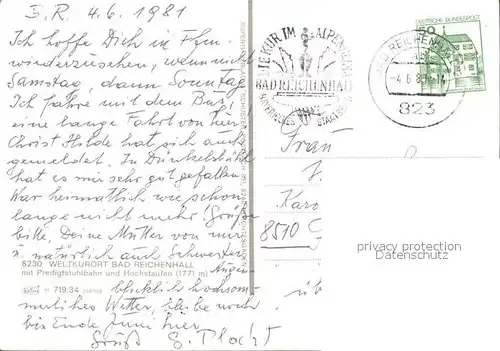 B. R. 4.6.1981
Ich hoffe Dich in Ffm.
wiederzusehen, wenn nicht
Samstag, dann Sonntag
Ich fahre mit dem Bus,
eine lange Fahrt von hier
Christ Hilde hat sich auch
gemeldet. In Dünkelsbühl
hat es mir sehr gut gefallen.
War heimatlich wie schon
lange nicht mehr! Grüße
bitte, Deine Mutter von mir
u. natürlich auch Schwester
8230 WELTKURORT BAD REICHENHALL
mit Predigtstuhlbahn und Hochstaufen (1771 m)
719.34
blicklich
Wetter, bleibe noch
bis Ende Juni hier
Gruß
ZUR KUR IM ALPENKLIMA
BAD REICHENHALL
BAYERISCHES STAATSBAD
BAD REICHENHALL
-4.6.81-14
823
DEUTSCHE BUNDESPOST
50
Frau
J.
Karo
8510
üb
privacy protection
Datenschutz